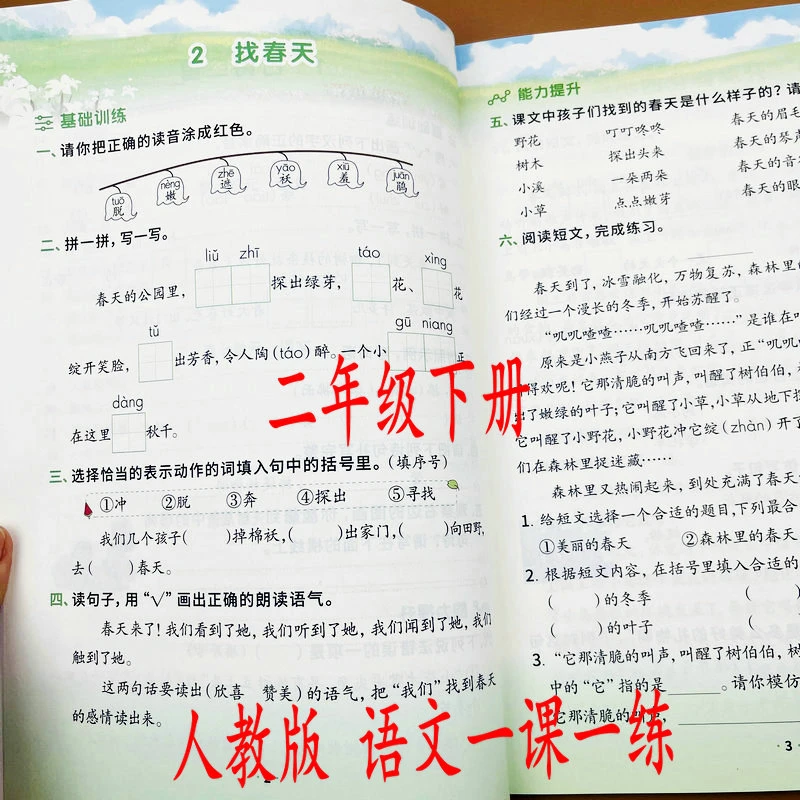 2 找春天
基础训练
一、请你把正确的读音涂成红色。
tuō nèng zhē yāo xiū juān
脱 嫩 遮 袄 羞 鹃
二、拼一拼,写一写。
liǔ zhī táo xìng
春天的公园里, 探出绿芽, 花、 花
tǔ gū niang
绽开笑脸, 出芳香,令人陶(táo)醉。一个小 正
dàng
在这里 秋千。
三、选择恰当的表示动作的词填入句中的括号里。(填序号)
①冲 ②脱 ③奔 ④探出 ⑤寻找
我们几个孩子( )掉棉袄,( )出家门,( )向田野,
去( )春天。
四、读句子,用“√”画出正确的朗读语气。
春天来了!我们看到了她,我们听到了她,我们闻到了她,我们
触到了她。
这两句话要读出(欣喜 赞美)的语气,把“我们”找到春天
的感情读出来。
能力提升
五、课文中孩子们找到的春天是什么样子的?请
野花 叮叮咚咚 春天的眉毛
树木 探出头来 春天的琴声
小溪 一朵两朵 春天的音
小草 点点嫩芽 春天的眼
六、阅读短文,完成练习。
春天到了,冰雪融化,万物复苏,森林里的
们经过一个漫长的冬季,开始苏醒了。
“叽叽喳喳……叽叽喳喳……”是谁在
原来是小燕子从南方飞回来了,正“叽叽
得欢呢!它那清脆的叫声,叫醒了树伯伯,
出了嫩绿的叶子;它叫醒了小草,小草从地下
它叫醒了小野花,小野花冲它绽(zhàn)开了
们在森林里捉迷藏……
森林里又热闹起来,到处充满了春天
1. 给短文选择一个合适的题目,下列最合
①美丽的春天 ②森林里的春天
2. 根据短文内容,在括号里填入合适的
( )的冬季 (
( )的叶子 (
3. “它那清脆的叫声,叫醒了树伯伯,
中的“它”指的是 。请你模仿
它那清脆的叫声,
·3·
二年级下册
人教版 语文一课一练